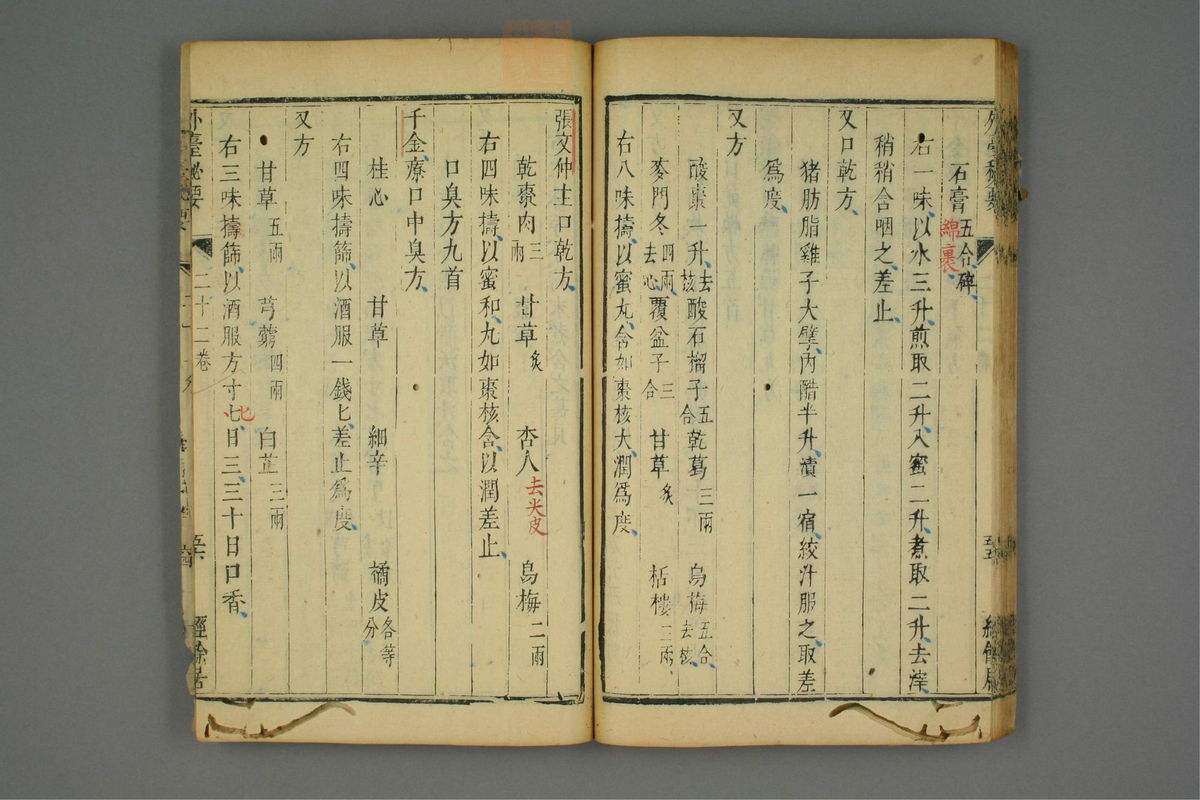 石膏五合碎綿裹
右一味以水三升煎取二升入蜜二升煮取二升去滓
稍稍含咽之差止
又口乾方
猪肪脂雞子大擘內醋半升漬一宿絞汁服之取差
爲度
又方
酸棗一升去核酸石榴子五合乾葛三兩烏梅五合去核
麥門冬四兩去心覆盆子三合甘草炙栝樓二兩
右八味擣以蜜丸含如棗核大潤爲度
五五
張文仲主口乾方
乾棗肉三兩甘草炙杏人去尖皮烏梅二兩
右四味擣以蜜和丸如棗核含以潤差止
口臭方九首
千金療口中臭方
桂心甘草細辛橘皮各等分
右四味擣篩以酒服一錢匕差止爲度
又方
甘草五兩芎藭四兩白芷三兩
右三味擣篩以酒服方寸七匕日三三十日口香
外臺秘要 二十二卷 五六 經餘居